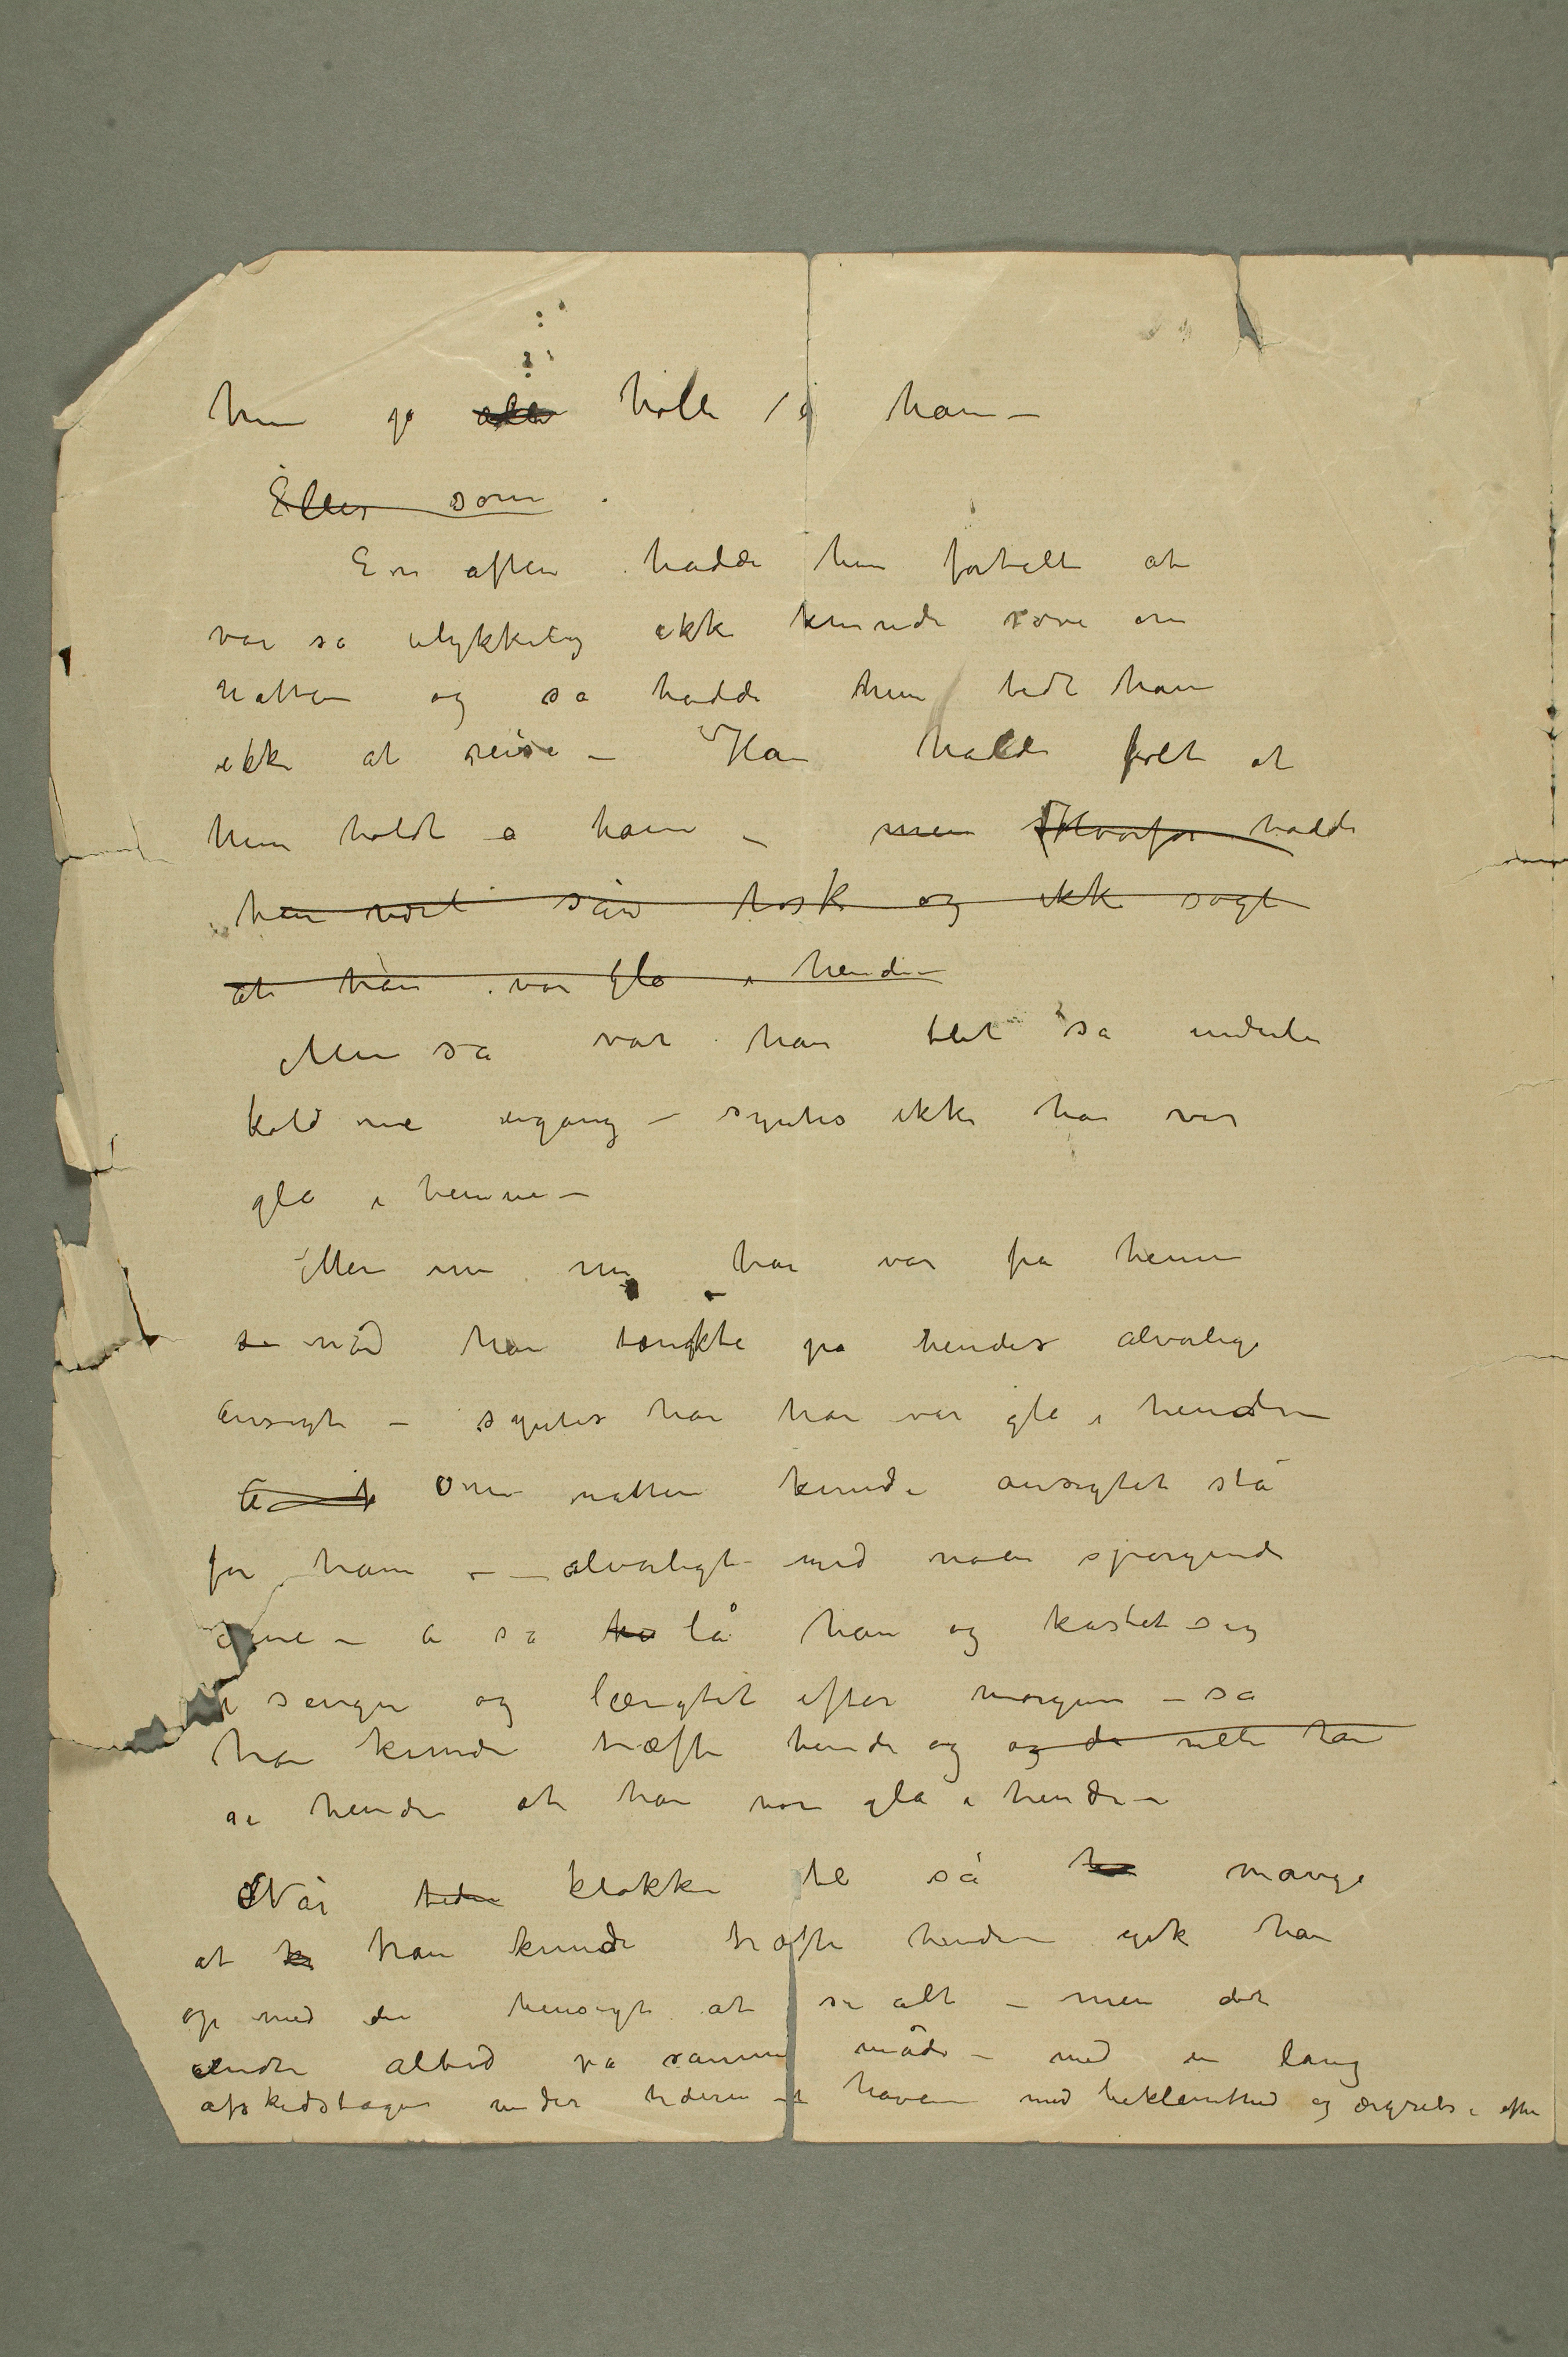 hun jo holle a ham –
Eller som
En aften hadde hun fortalt at
var så ulykkelig ikke kunde sove om
natten og så hadde hun bedt ham
ikke at reise – Han hadde følt at
hun holdt a ham – men Hvorfor hadde
han vært sån tosk og ikke sagt
at han var gla i hende –
Men så var han blet så underli
kold me engang – syntes ikke han var
gla i henne –
Men nu når han var fra henne
så når han tænkte på hendes alvorlige
ansigt – syntes han han var gla i hende –
Om natten kunde ansigtet stå
for ham – – alvorligt med noen spørgende
øine – å så lå han og kastet seg
i sengen og længtet efter morgen – så
han kunde træffe hende og og da ville han
si hende at han var gla i hende –
Når tiden klokken ble så mange
at han kunde træffe hende gik han
op med den hensigt at si alt – men det
endte altid på samme måde – med en lang
afskedstagen under træerne i haven med beklemthed og ærgrelse efter